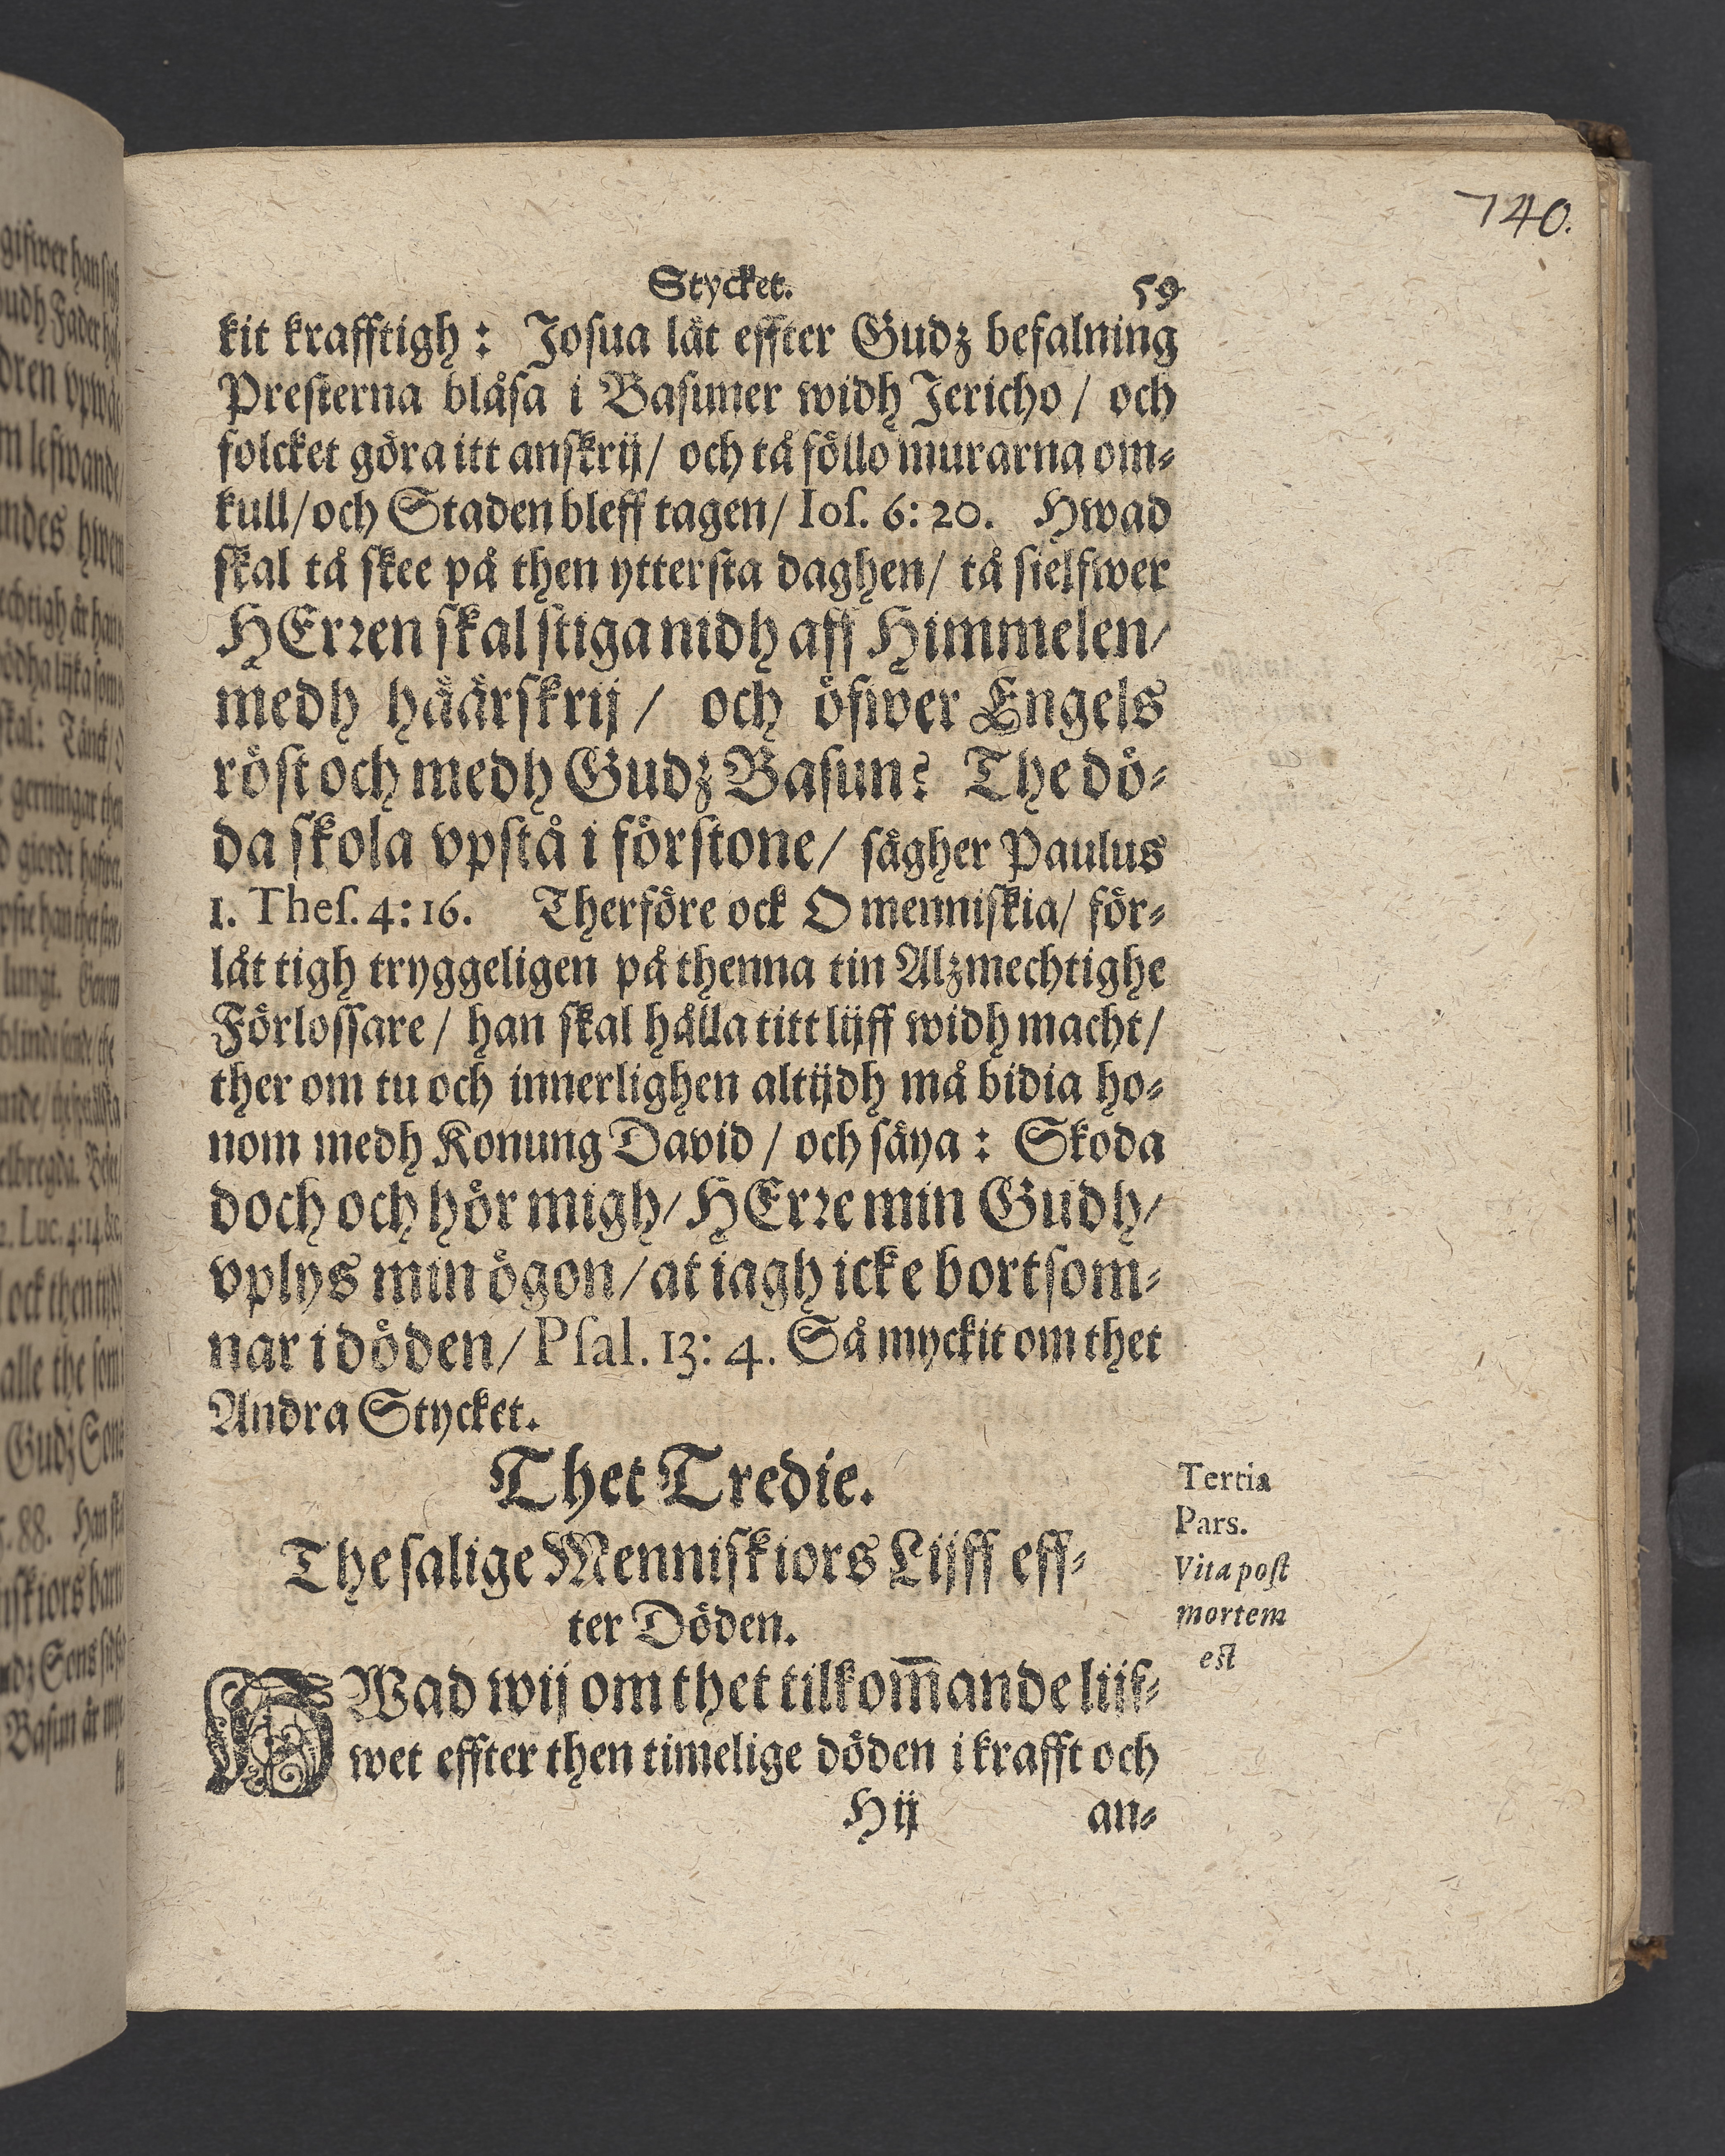 740.
Stycket. 59
kit krafftigh: Josua låt effter Gudz befalning
Presterna blåsa i Basuner widh Jericho / och
folcket göra itt anskrij / och tå föllo murarna om⸗
kull / och Staden bleff tagen / Ios. 6: 20. Hwad
skal tå skee på then yttersta daghen / tå sielfwer
HErren skal stiga nidh aff Himmelen /
medh häärskrij / och öfwer Engels
röst och medh Gudz Basun? The dö⸗
da skola vpstå i förstone / sägher Paulus
1. Thes. 4: 16. Therföre ock O menniskia / för⸗
låt tigh tryggeligen på thenna tin Alzmechtighe
Förlossare / han skal hålla titt lijff widh macht /
ther om tu och innerlighen altijdh må bidia ho⸗
nom medh Konung David / och säya: Skoda
doch och hör migh / HErre min Gudh /
vplys min ögon / at iagh icke bortsom⸗
nar i döden / Psal. 13: 4. Så myckit om thet
Andra Stycket.
Thet Tredie.
The salige Menniskiors Lijff eff⸗
ter Döden.
HWad wij om thet tilkom̅ande lijf⸗
wet effter then timelige döden i krafft och
Hij an⸗
Tertia
Pars.
Vita post
mortem
est